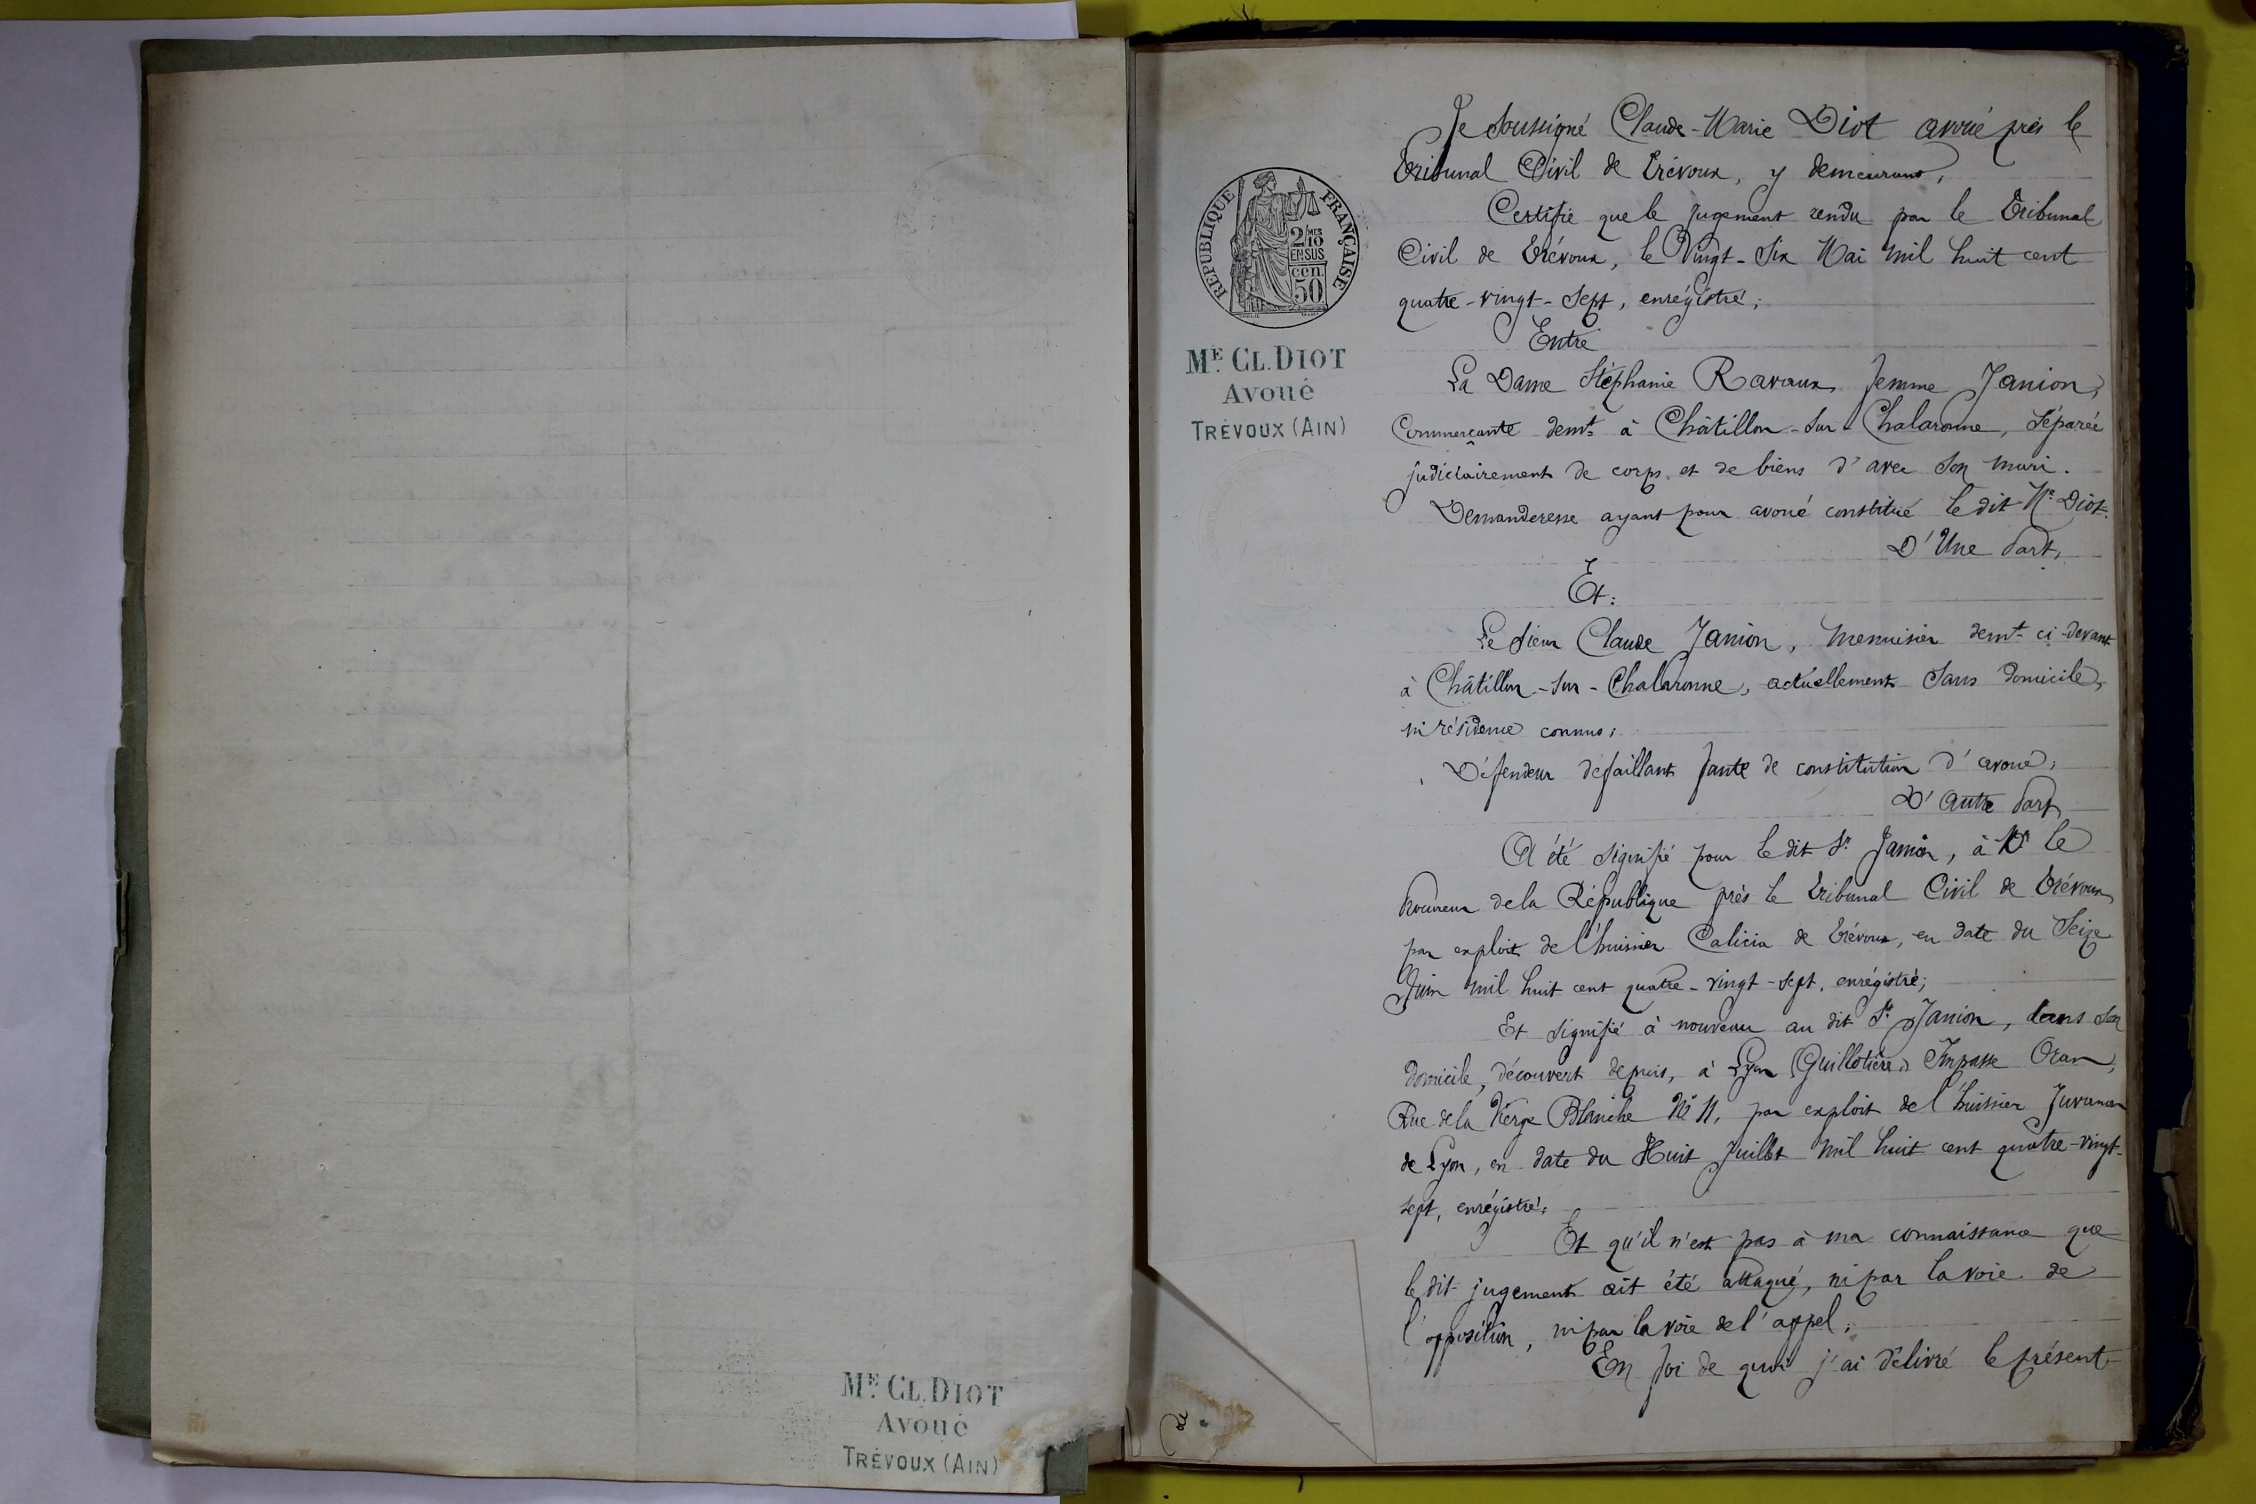 Mᴱ. CL. DIOT
Avoué
TRÉVOUX (AIN)
RÉPUBLIQUE FRANÇAISE
2/10 MES
EN SUS
cen.
50
Mᴱ. CL. DIOT
Avoué
TRÉVOUX (AIN)
Je soussigné Claude-Marie Diot avoué près le
Tribunal Civil de Trévoux, y demeurant,
Certifie que le jugement rendu par le Tribunal
Civil de Trévoux, le Vingt-Six Mai mil huit cent
quatre-vingt-sept, enrégistré;
Entre
La Dame Stéphanie Ravaux femme Janion,
Commerçante demt à Châtillon-sur-Chalaronne, séparée
judiciairement de corps et de biens d'avec son mari.
Demanderesse ayant pour avoué constitué le dit Me Diot.
D'Une part,
Et:
Le sieur Claude Janion, menuisier demt ci-devant
à Châtillon-sur-Chalaronne, actuellement sans domicile,
ni résidence connus;
Défendeur défaillant faute de constitution d'avoué;
D'autre part,
A été signifié pour le dit Sr Janion, à Mr le
Procureur de la République près le Tribunal Civil de Trévoux,
par exploit de l'huissier Calicia de Trévoux, en date du Seize
Juin mil huit cent quatre-vingt-sept, enrégistré;
Et signifié à nouveau au dit Sr Janion, dans son
domicile, découvert depuis, à Lyon (Guillotière) Impasse Oran,
Rue de la Vierge Blanche No 11, par exploit de l'huissier
de Lyon, en date du Huit Juillet mil huit cent quatre-vingt-
sept, enrégistré;
Et qu'il n'est pas à ma connaissance que
le dit jugement ait été attaqué, ni par la voie de
l'opposition, ni par la voie de l'appel;
En foi de quoi j'ai délivré le présent